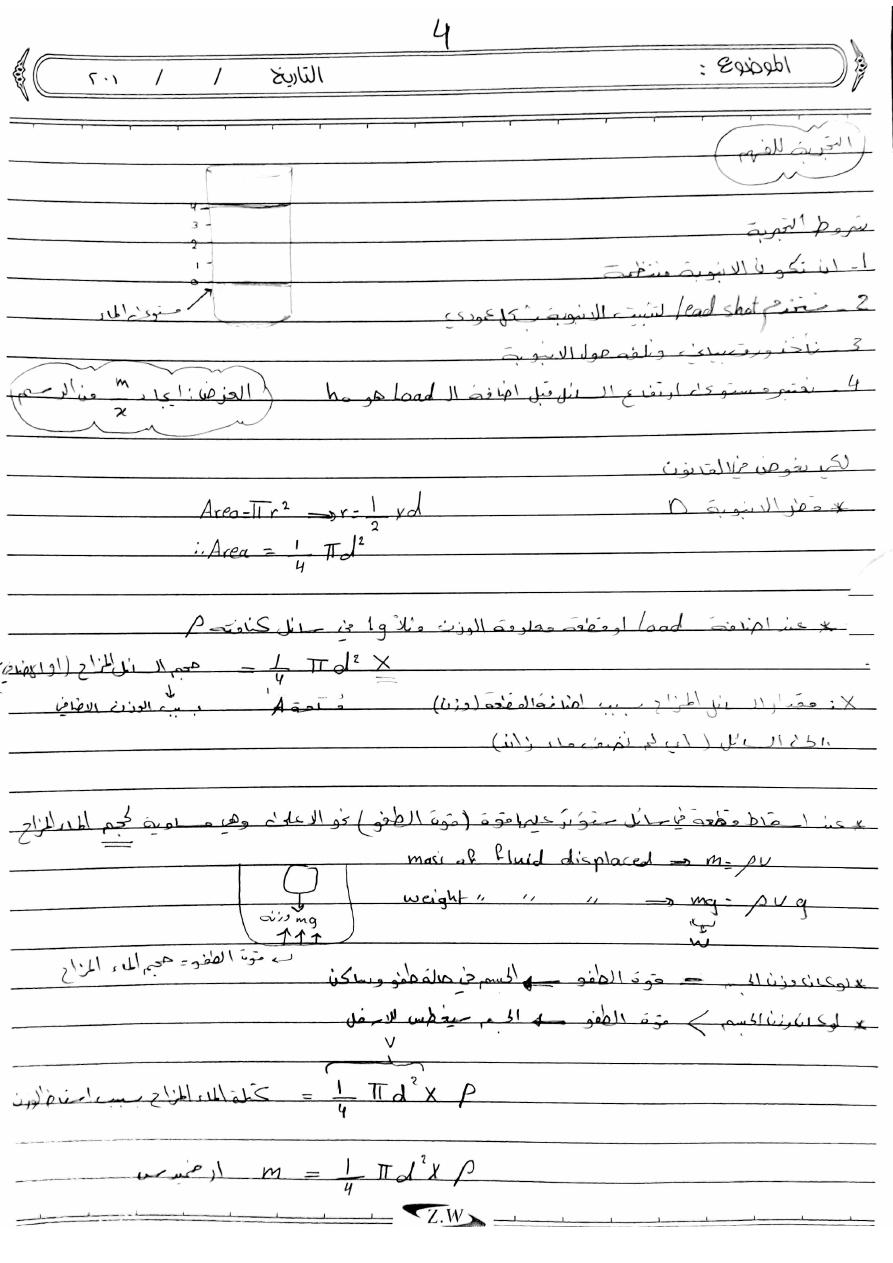 4
الموضوع : التاريخ / / ٢٠١
التجربة للفهم
4
3
2
1
0
مستوى الماء
شروط التجربة
1- ان تكون الانبوبة منتظمة
2- نستخدم lead shot لتثبيت الانبوبة بشكل عمودي
3- نأخذ ورق بياني ونلفه حول الانبوبة
4- نعتبر مستوى ارتفاع السائل قبل اضافة الـ load هو h₀
الغرض: ايجاد m/x من الرسم
لكي نعوض في القانون
* قطر الانبوبة D
Area = πr² → r = 1/2 × d
∴ Area = 1/4 πd²
* عند اضافة load او قطعة معلومة الوزن مثلاً 1g في سائل كثافته ρ
حجم السائل المزاح (او الاضافي) = 1/4 πd² X
بسبب الوزن الاضافي
A
X: مقدار السائل المزاح بسبب اضافة القطعة (وزن)
الى السائل (اي لم نضيف ماء زائد)
* عند اسقاط قطعة في سائل ستؤثر عليها قوة (قوة الطفو) نحو الاعلى وهي مساوية لحجم الماء المزاح
mass of fluid displaced → m = ρv
weight " " " → mg = ρvg
w
وزنه mg
قوة الطفو = حجم الماء المزاح
* لو كان وزن الجسم = قوة الطفو ← الجسم في حالة طفو وساكن
* لو كان وزن الجسم > قوة الطفو ← الجسم سيغطس للاسفل
V
كتلة الماء المزاح بسبب اسقاط الوزن = 1/4 πd² x ρ
ارخميدس m = 1/4 πd² x ρ
Z.W